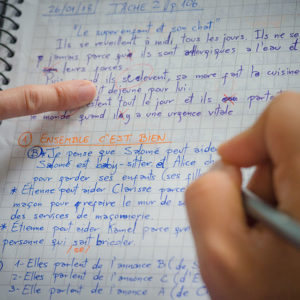 26/01/18 TÂCHE 2/p.106
"Le superenfant et son chat"
Ils se reveillent à midi tous les jours. Ils ne se
jamais parce que ils sont allergiques a l'eau et
leurs forces.
ils se levent, sa mere fait la cuisine
dejeune pour lui.
tout le jour et ils parte
le monde quand il y a une urgence vitale
1 ENSEMBLE C'EST BIEN
B Je pense que Salomé peut aider
Salomé est baby-sitter et Alice
pour garder ses enfants (ses fill
* Étienne peut aider Clarisse parce
maçon pour réparer le mur de s
des services de maçonnerie.
* Étienne peut aider Kamel parce que
personne qui sait bricoler.
1- Elles parlent de l'annonce B (de S
2- Elles parlent de l'annonce C (d'E
3- Elle parlent de l'annonce A (de C